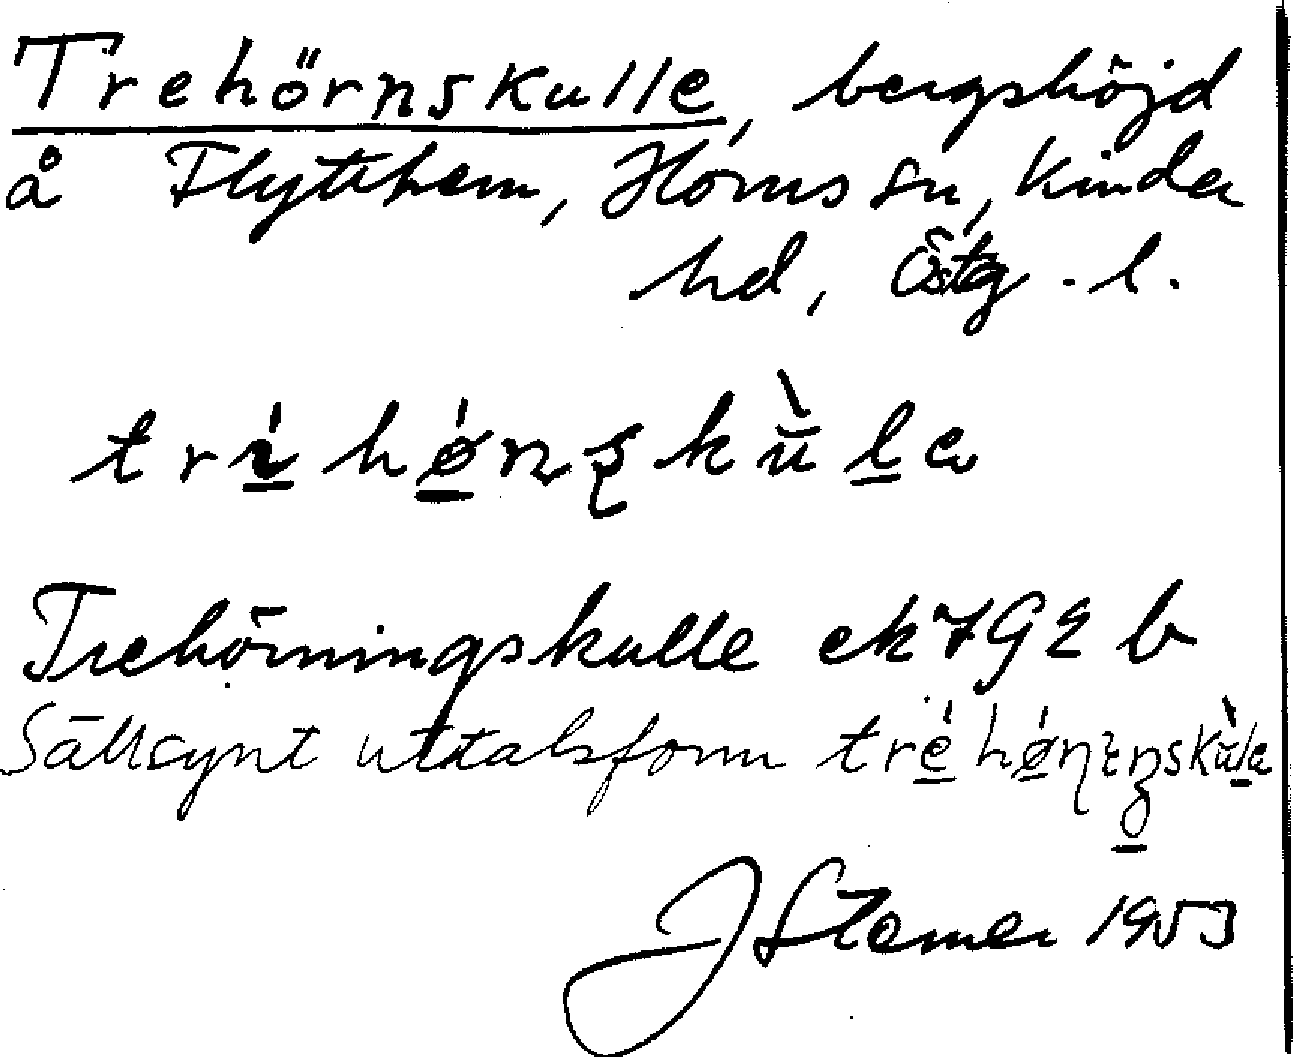 Trehörnskulle, bergshöjd
å Flytthem, Horns sn, Kinda
hd, Östg.l.
trí hǿnskùla
Trehörningskulle ek 7G2 b
Sällsynt uttalsform
J Stemer 1953